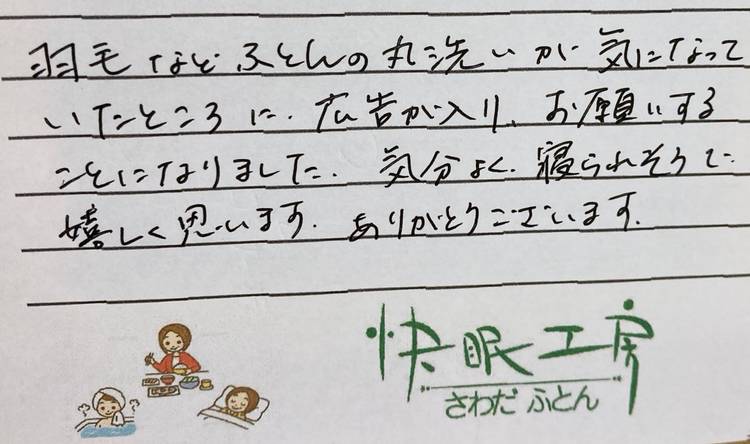 羽毛などふとんの丸洗いが気になって
いたところに、広告が入り、お願いする
ことになりました。気分よく、寝られそうで
嬉しく思います。ありがとうございます。
快眠工房
さわだ ふとん